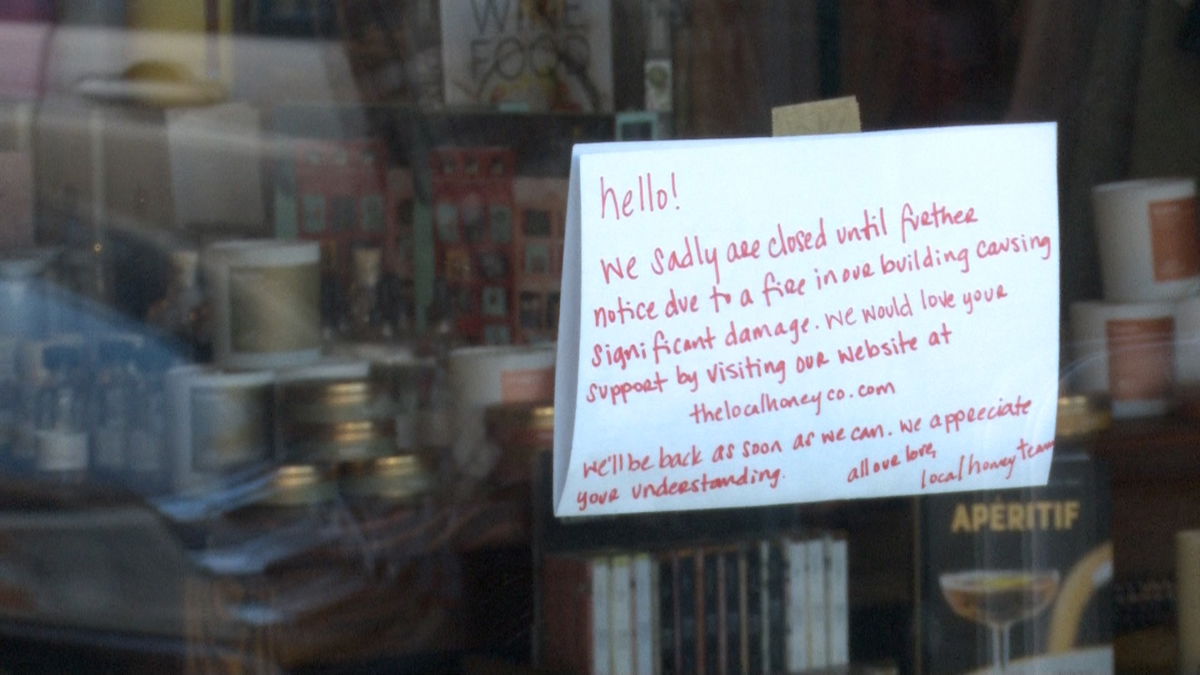 WINE
FOOD
hello!
we sadly are closed until further
notice due to a fire in our building causing
significant damage. we would love your
support by visiting our website at
thelocalhoneyco.com
we'll be back as soon as we can. we appreciate
your understanding.
all our love,
local honey team
APÉRITIF